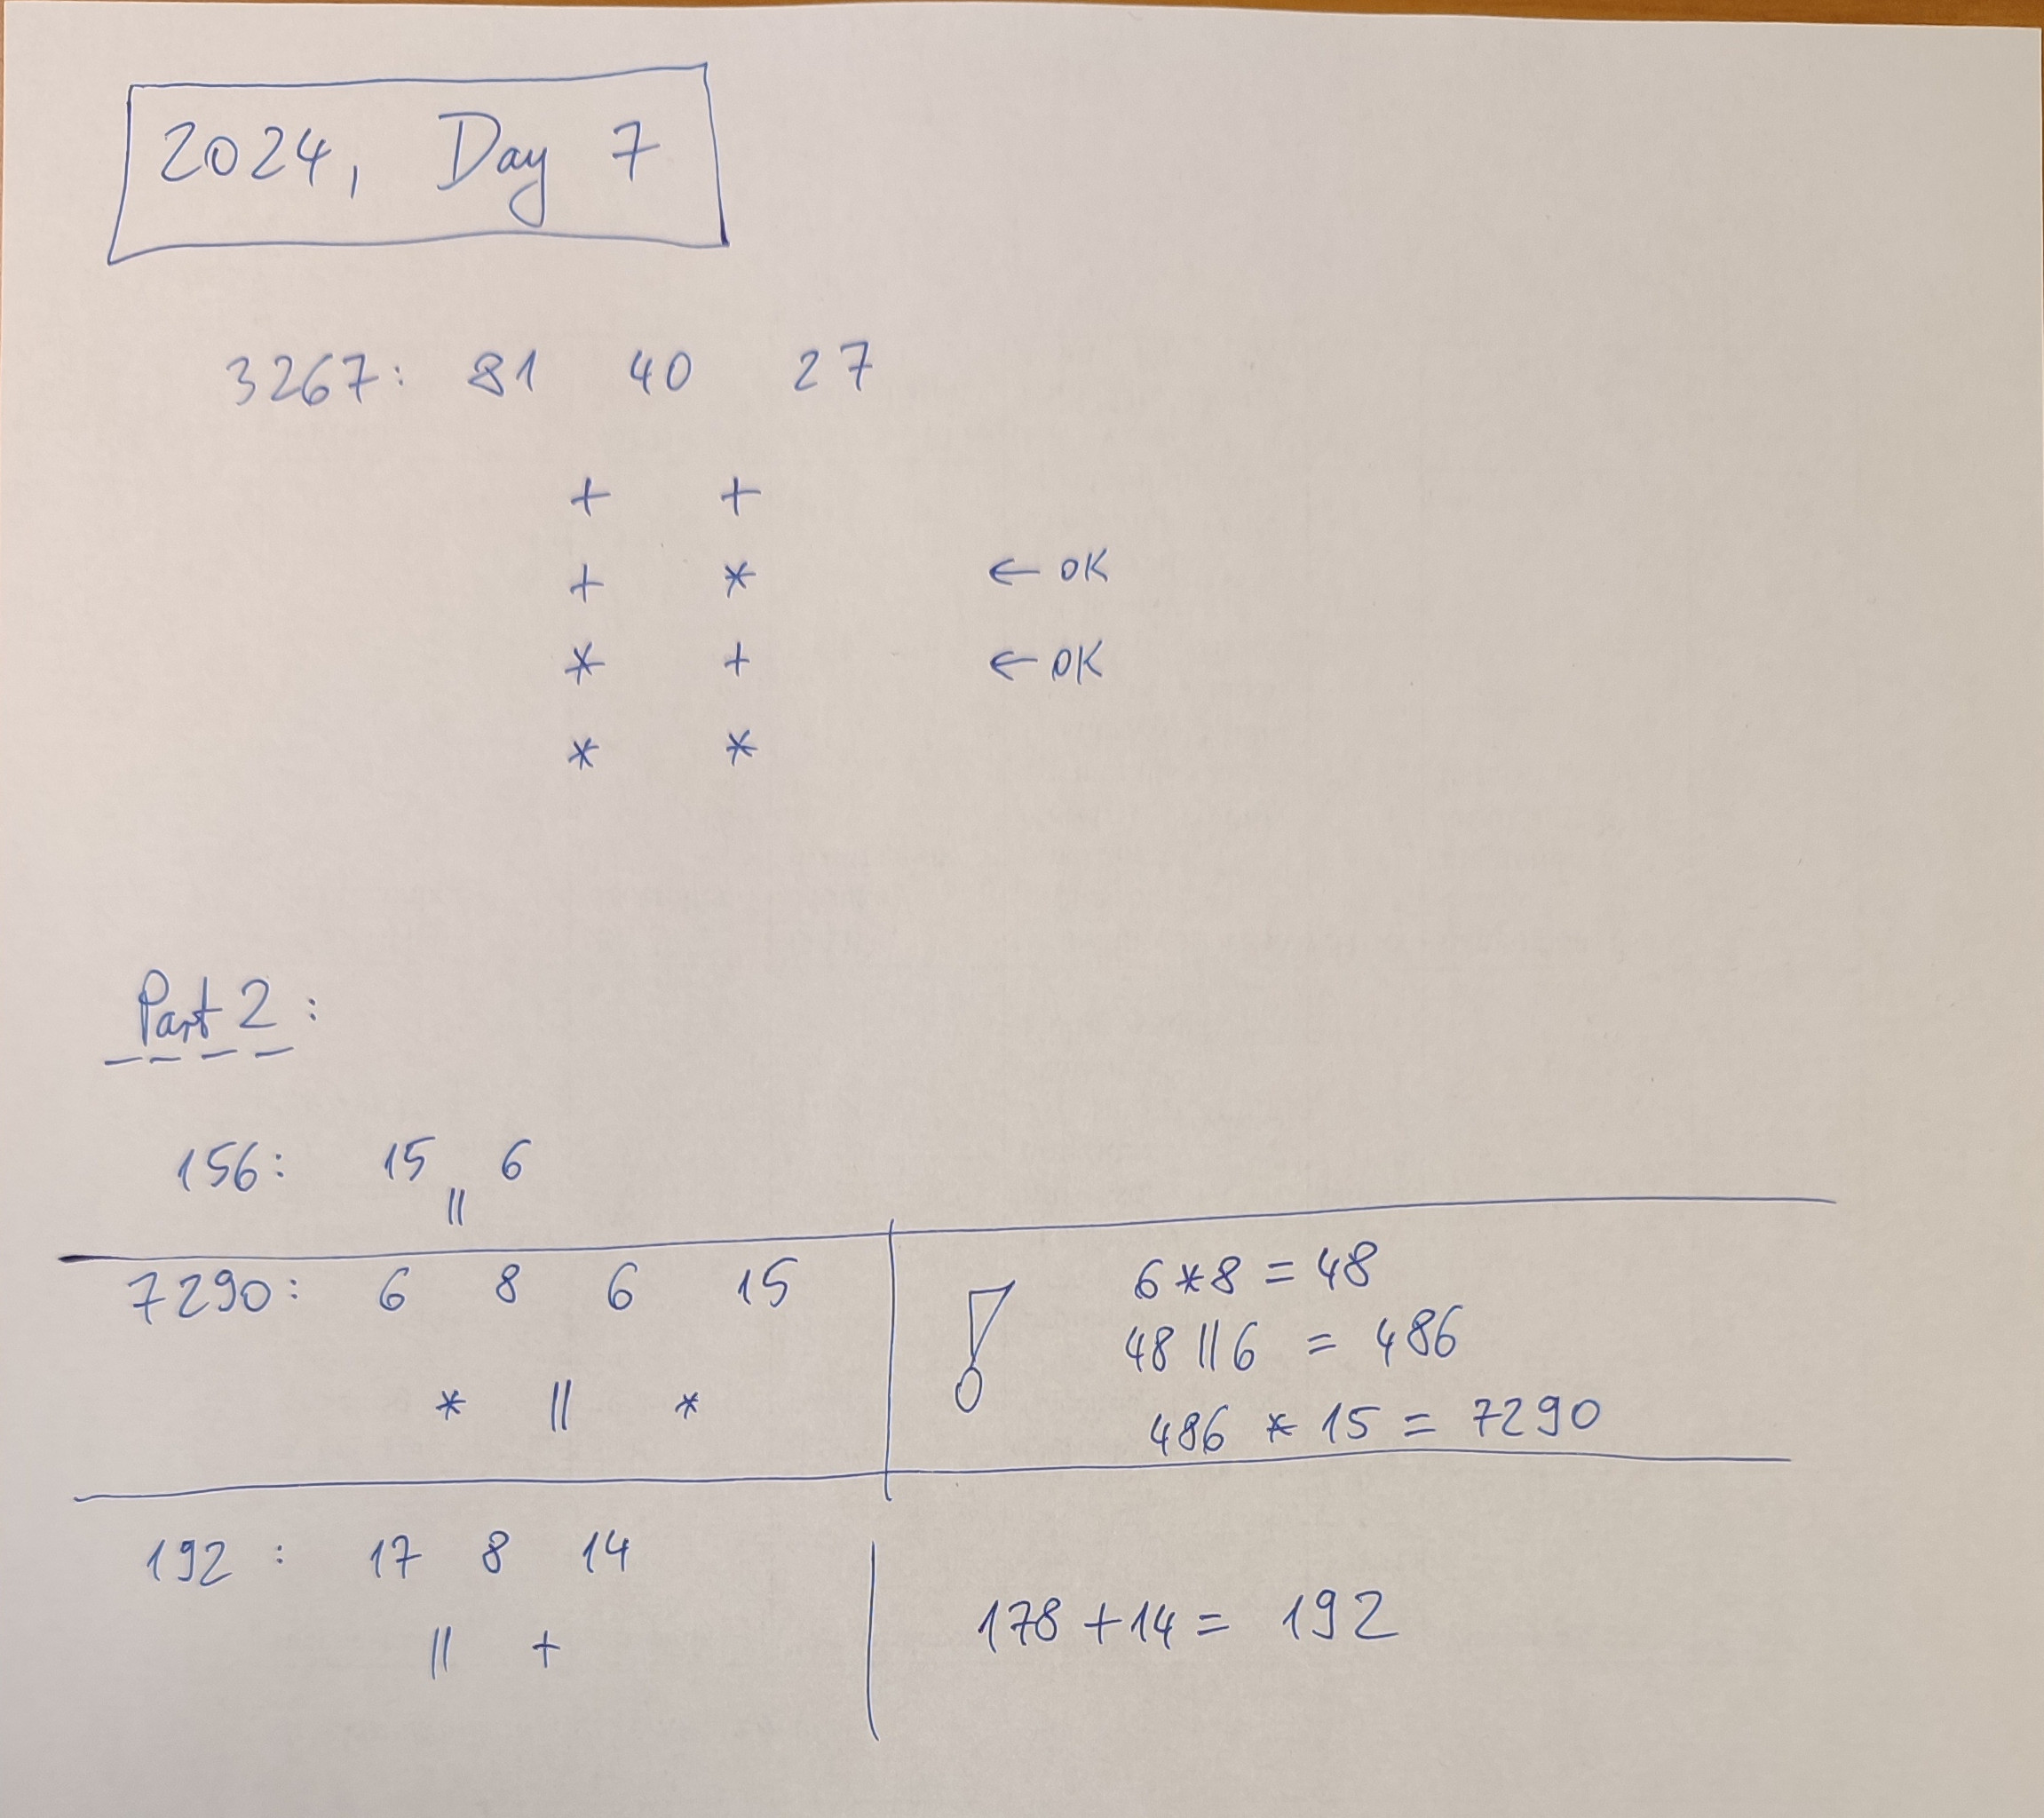 2024, Day 7
3267: 81 40 27
+ +
+ * ← OK
* + ← OK
* *
Part 2:
156: 15 || 6
7290: 6 8 6 15
* || *
!
6*8 = 48
48 || 6 = 486
486 * 15 = 7290
192 : 17 8 14
|| +
178 + 14 = 192